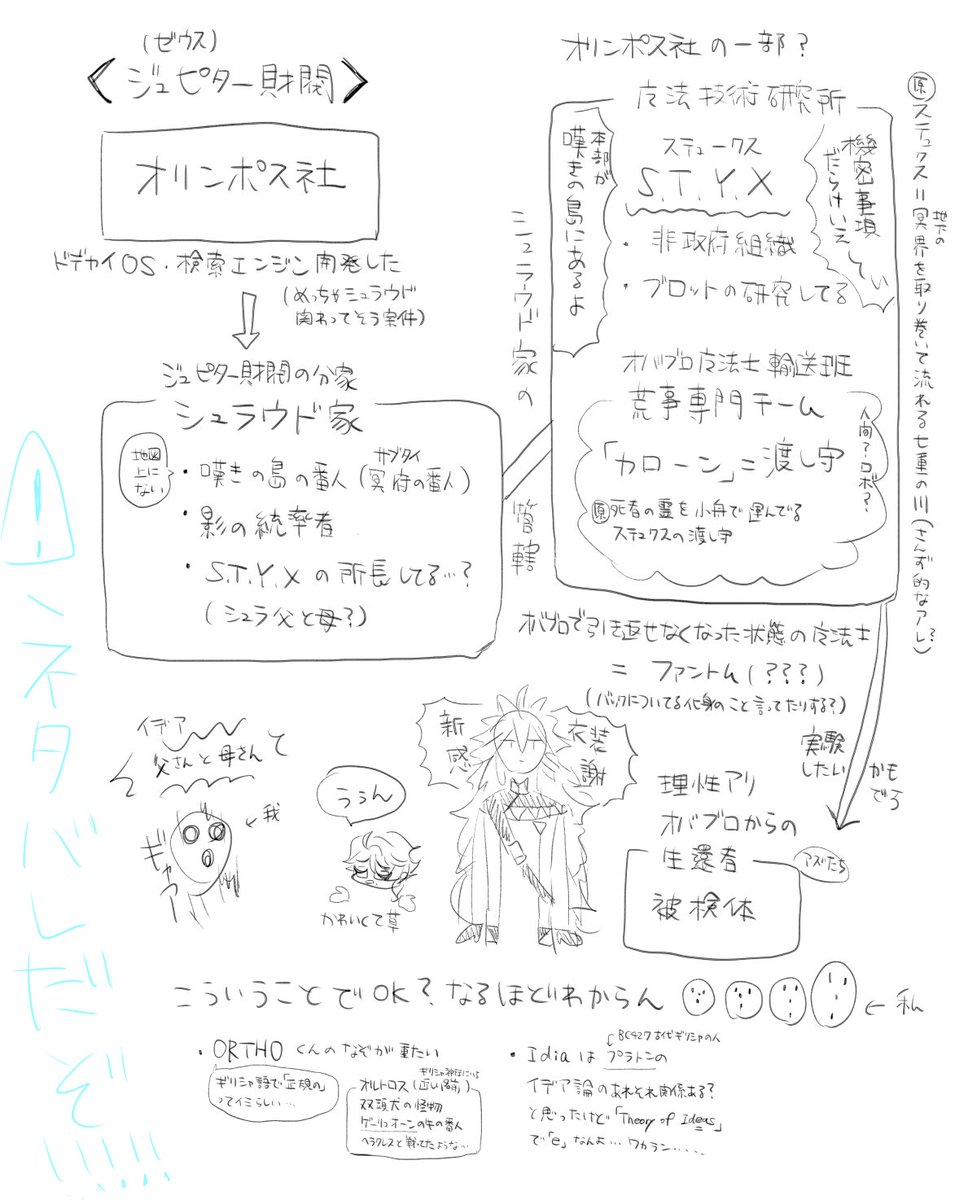 (ゼウス)
<ジュピター財閥>
オリンポス社
ドデカイOS・検索エンジン開発した
(めっちゃシュラウド
関わってそう案件)
ジュピター財閥の分家
シュラウド家
地図
上に
ない
・嘆きの島の番人(冥府の番人)
サブタイ
・影の統率者
・S.T.Y.Xの所長してる…?
(シュラ父と母?)
オリンポス社の一部?
魔法技術研究所
本部が
嘆きの島にあるよ
スチュークス
S.T.Y.X
・非政府組織
・ブロットの研究してる
機密事項
だらけいえ
てい
シュラウド家の
管轄
オバブロ魔法士輸送班
荒事専門チーム
「カローン」=渡し守
原 死者の霊を小舟で運んでる
ステュクスの渡し守
人間?ロボ?
原 ステュクス=冥界を取り巻いて流れる七重の川(さんず的なアレ?)
地下の
オバブロで引き返せなくなった状態の魔法士
=ファントム(???)
(バックについてる化身のこと言ってたりする?)
実験
したい
かも
でろ
理性アリ
オバブロからの
生還者
被検体
アズたち
①ネタバレだぞ!!!!!
イデア
父さんと母さんと
ギャアー
←我
ううん
かわいくて草
新
感
衣装
謝
こういうことでOK?なるほどわからん
←私
・ORTHOくんのなぞが重たい
ギリシャ語で「正規の」
ってイミらしい…
ギリシャ神話にいる
オルトロス(正い踊)
双頭犬の怪物
ゲーリュオーンの牛の番人
ヘラクレスと戦ってたような…
・Idiaはプラトンの
BC427古代ギリシャの人
イデア論のあれそれ関係ある?
と思ったけど「Theory of Ideas」
で「e」なんよ…ワカラン....